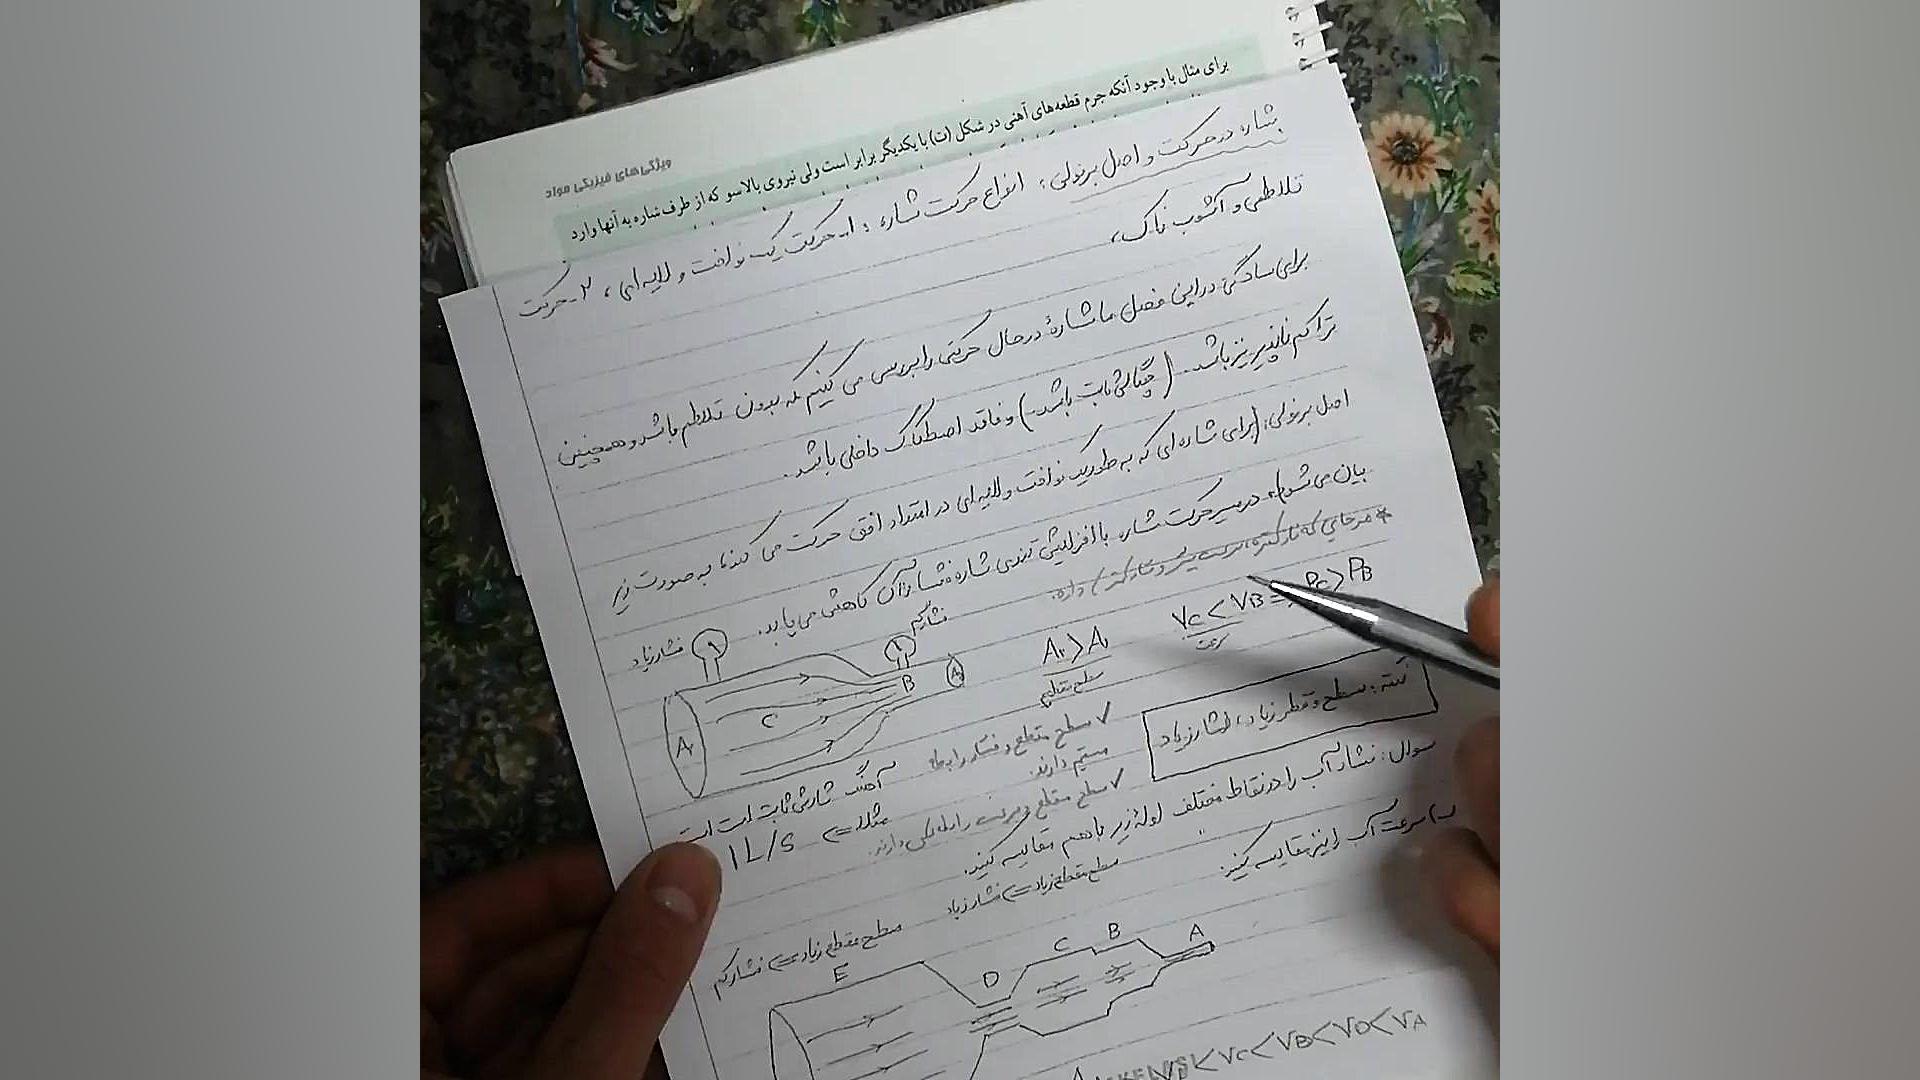 ویژگی‌های فیزیکی مواد
برای مثال با وجود آنکه جرم قطعه‌های آهنی در شکل (ت) با یکدیگر برابر است ولی نیروی بالاسو که از طرف شاره به آنها وارد
شاره در حرکت و اصل برنولی: انواع حرکت شاره: ۱- حرکت یک نواخت و لایه ای، ۲- حرکت
تلاطمی و آشوب ناک،
برای سادگی در این فصل ما شارهٔ در حال حرکتی را بررسی می کنیم که بدون تلاطم باشد و همچنین
تراکم ناپذیر نیز باشد. (چگالی ثابت باشد.) و فاقد اصطکاک داخلی باشد.
اصل برنولی: (برای شاره ای که به طور یک نواخت و لایه ای در امتداد افق حرکت می کند، به صورت زیر
بیان می شود): در مسیر حرکت شاره با افزایش تندی شاره فشار آن کاهش می یابد.
* هر جایی که نازکتره، سرعت بیشتر و فشار کمتری داره.
VC < VB ⇒ PC > PB
سرعت
فشار زیاد
فشار کم
A₁
C
B
سطح مقطع
نکته: سطح و قطر زیاد، فشار زیاد
✓ سطح مقطع و فشار رابطه
مستقیم دارند.
✓ سطح مقطع و سرعت رابطه عکس دارند.
آهنگ شارش ثابت است است
مثلا ⇐ 1 L/S
سوال: فشار آب را در نقاط مختلف لولهٔ زیر با هم مقایسه کنید.
ب) سرعت آب را نیز مقایسه کنید.
سطح مقطع زیاد ⇐ فشار زیاد
سطح مقطع زیاد ⇐ فشار کم
E
D
C
B
A
< VC < VB < VD < VA